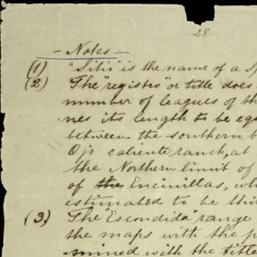 28.
- Notes -
(1) "Sitio" is the name of a Sp
(2) The "registro" or title does
number of leagues of th
nes its length to be equ
between the southern b
Ojo caliente ranch, at
the Northern limit of
of the Encinillas, wh
estimated to be thir
(3) The Escondida range
the maps with the p
mined with the title